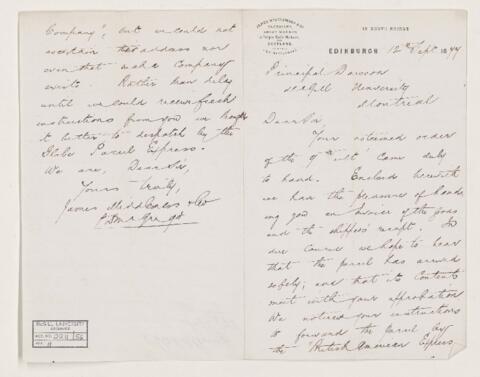 JAMES MIDDLEMASS & CO
EDINBURGH 12th Sept 1877
Principal Dawson
McGill University
Montreal
Dear Sir,
Your esteemed order
of the 9th ult° came duly
to hand. Enclosed herewith
we have the pleasure of hand
ing you an Invoice of the goods
and the shippers' receipt. In
due course we hope to hear
that the parcel has arrived
safely; and that its contents
meet with your approbation
We noticed your instructions
to forward the parcel by
the "British American Express
Company", but we could not
ascertain their address nor
even that such a Company
exists. Rather than delay
until we could receive fresh
instructions from you we thought
it better to despatch by the
Globe Parcel Express.
We are, Dear Sir,
Yours truly,
James Middlemass & Co
McGILL UNIVERSITY
ARCHIVES
ACC. NO.
REF.